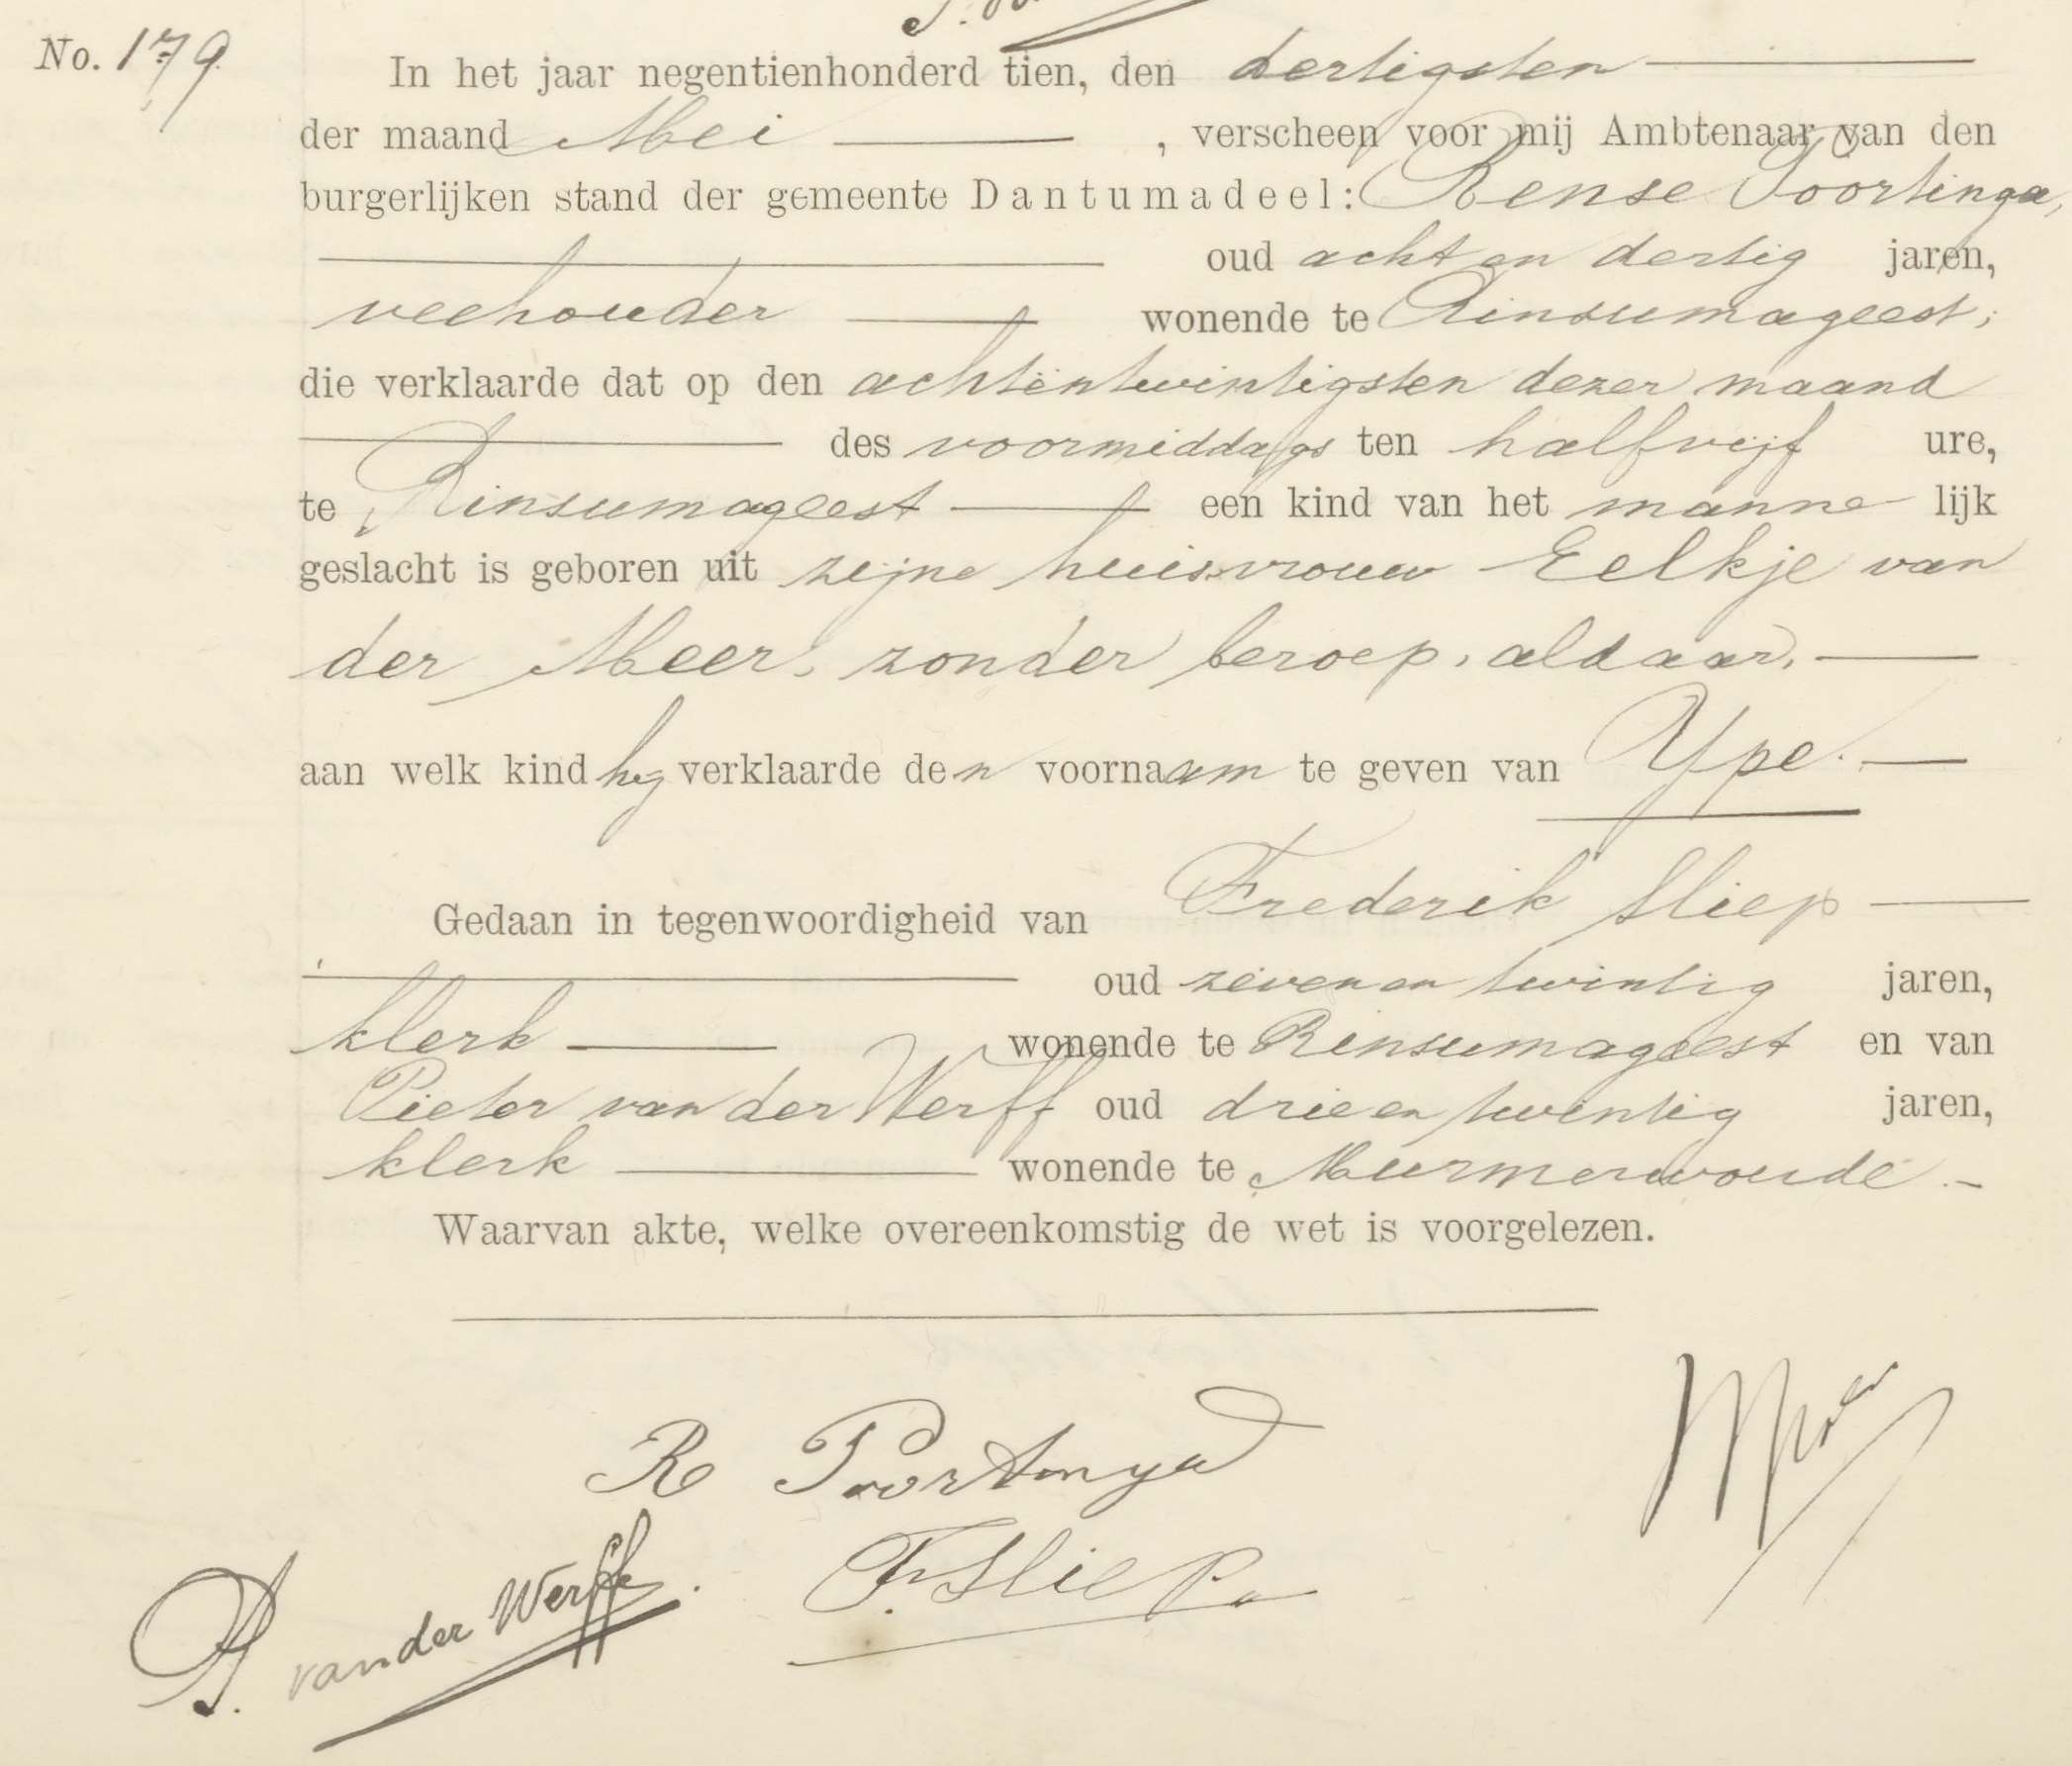 No. 179
In het jaar negentienhonderd tien, den dertigsten
der maand Mei , verscheen voor mij Ambtenaar van den
burgerlijken stand der gemeente Dantumadeel: Rense Poortinga,
oud acht en dertig jaren,
veehouder wonende te Rinsumageest;
die verklaarde dat op den achtentwintigsten dezer maand
des voormiddags ten halfvijf ure,
te Rinsumageest een kind van het mannelijk
geslacht is geboren uit zijne huisvrouw Eelkje van
der Meer, zonder beroep, aldaar,
aan welk kind hij verklaarde den voornaam te geven van Ype.
Gedaan in tegenwoordigheid van Frederik Sliep
oud zevenen twintig jaren,
klerk wonende te Rinsumageest en van
Pieter van der Werff oud drieen twintig jaren,
klerk wonende te Murmerwoude.
Waarvan akte, welke overeenkomstig de wet is voorgelezen.
R Poortinga
F. Sliep
P. van der Werff.